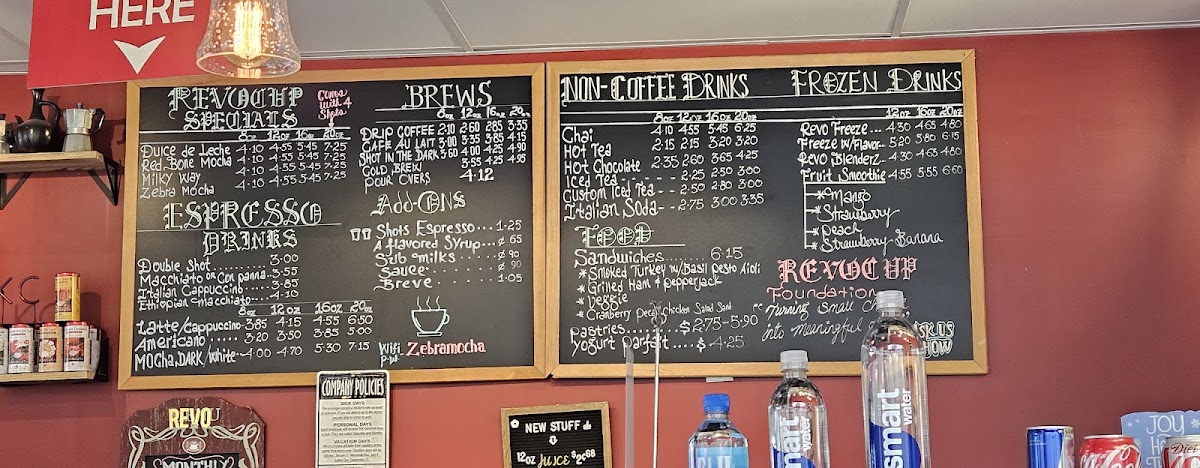 HERE
REVOCUP
SPECIALS
Comes
with 4
Shots
8oz 12oz 16oz 20oz
Dulce de Leche 4.10 4.55 5.45 7.25
Red Bone Mocha 4.10 4.55 5.45 7.25
Milky Way 4.10 4.55 5.45 7.25
Zebra Mocha 4.10 4.55 5.45 7.25
ESPRESSO
DRINKS
Double Shot ........ 3.00
Macchiato OR Con panna.. 3.55
Italian Cappuccino.... 3.85
Ethiopian Macchiato.... 4.10
8oz 12oz 16oz 20oz
Latte/Cappuccino 3.85 4.15 4.55 6.50
Americano ..... 3.20 3.50 3.85 5.00
MOCha,DARK/White-- 4.00 4.70 5.30 7.15
BREWS
8oz 12oz 16oz 20oz
DRIP COFFEE 2.10 2.60 2.85 3.35
CAFE AU LAIT 3.00 3.35 3.85 4.15
SHOT IN THE DARK 3.60 4.00 4.25 4.95
COLD BREW 3.55 4.25 4.95
POUR OVERS 4.12
Add-ONs
Shots Espresso... 1.25
A flavored Syrup... ¢ 65
Sub Milks .... ¢ 90
Sauce ....... ¢ 90
Breve ........ 1.05
Wifi
P-W:
Zebramocha
NON-COFFEE DRINKS
8oz 12oz 16oz 20oz
Chai 4.10 4.55 5.45 6.25
Hot Tea 2.15 2.15 3.20 3.20
Hot Chocolate 2.35 2.60 3.65 4.25
Iced Tea ...... 2.25 2.50 3.00
Custom Iced Tea .. 2.50 2.80 3.00
Italian Soda-- 2.75 3.00 3.35
FOOD
Sandwiches....... 6.15
*Smoked Turkey w/Basil Pesto Aioli
*Grilled Ham & Pepperjack
*Veggie
*Cranberry Pecan Chicken Salad Sand
Pastries......$2.75-5.90
Yogurt Parfait....$ 4.25
FROZEN DRINKS
12oz 16oz 20oz
Revo Freeze... 4.30 4.65 4.80
Freeze w/Flavor.. 5.20 5.80 6.15
Revo Blenderz.. 4.30 4.65 4.80
Fruit Smoothie 4.55 5.55 6.60
*Mango
*Strawberry
*Peach
*Strawberry-Banana
REVOCUP
Foundation
"Turning Small
into Meaningful
ASK US
HOW
COMPANY POLICIES
SICK DAYS
PERSONAL DAYS
VACATION DAYS
REVO
MONTHLY
NEW STUFF
12oz JUICE $2.68
smart
water
smart
water
JOY
Diet